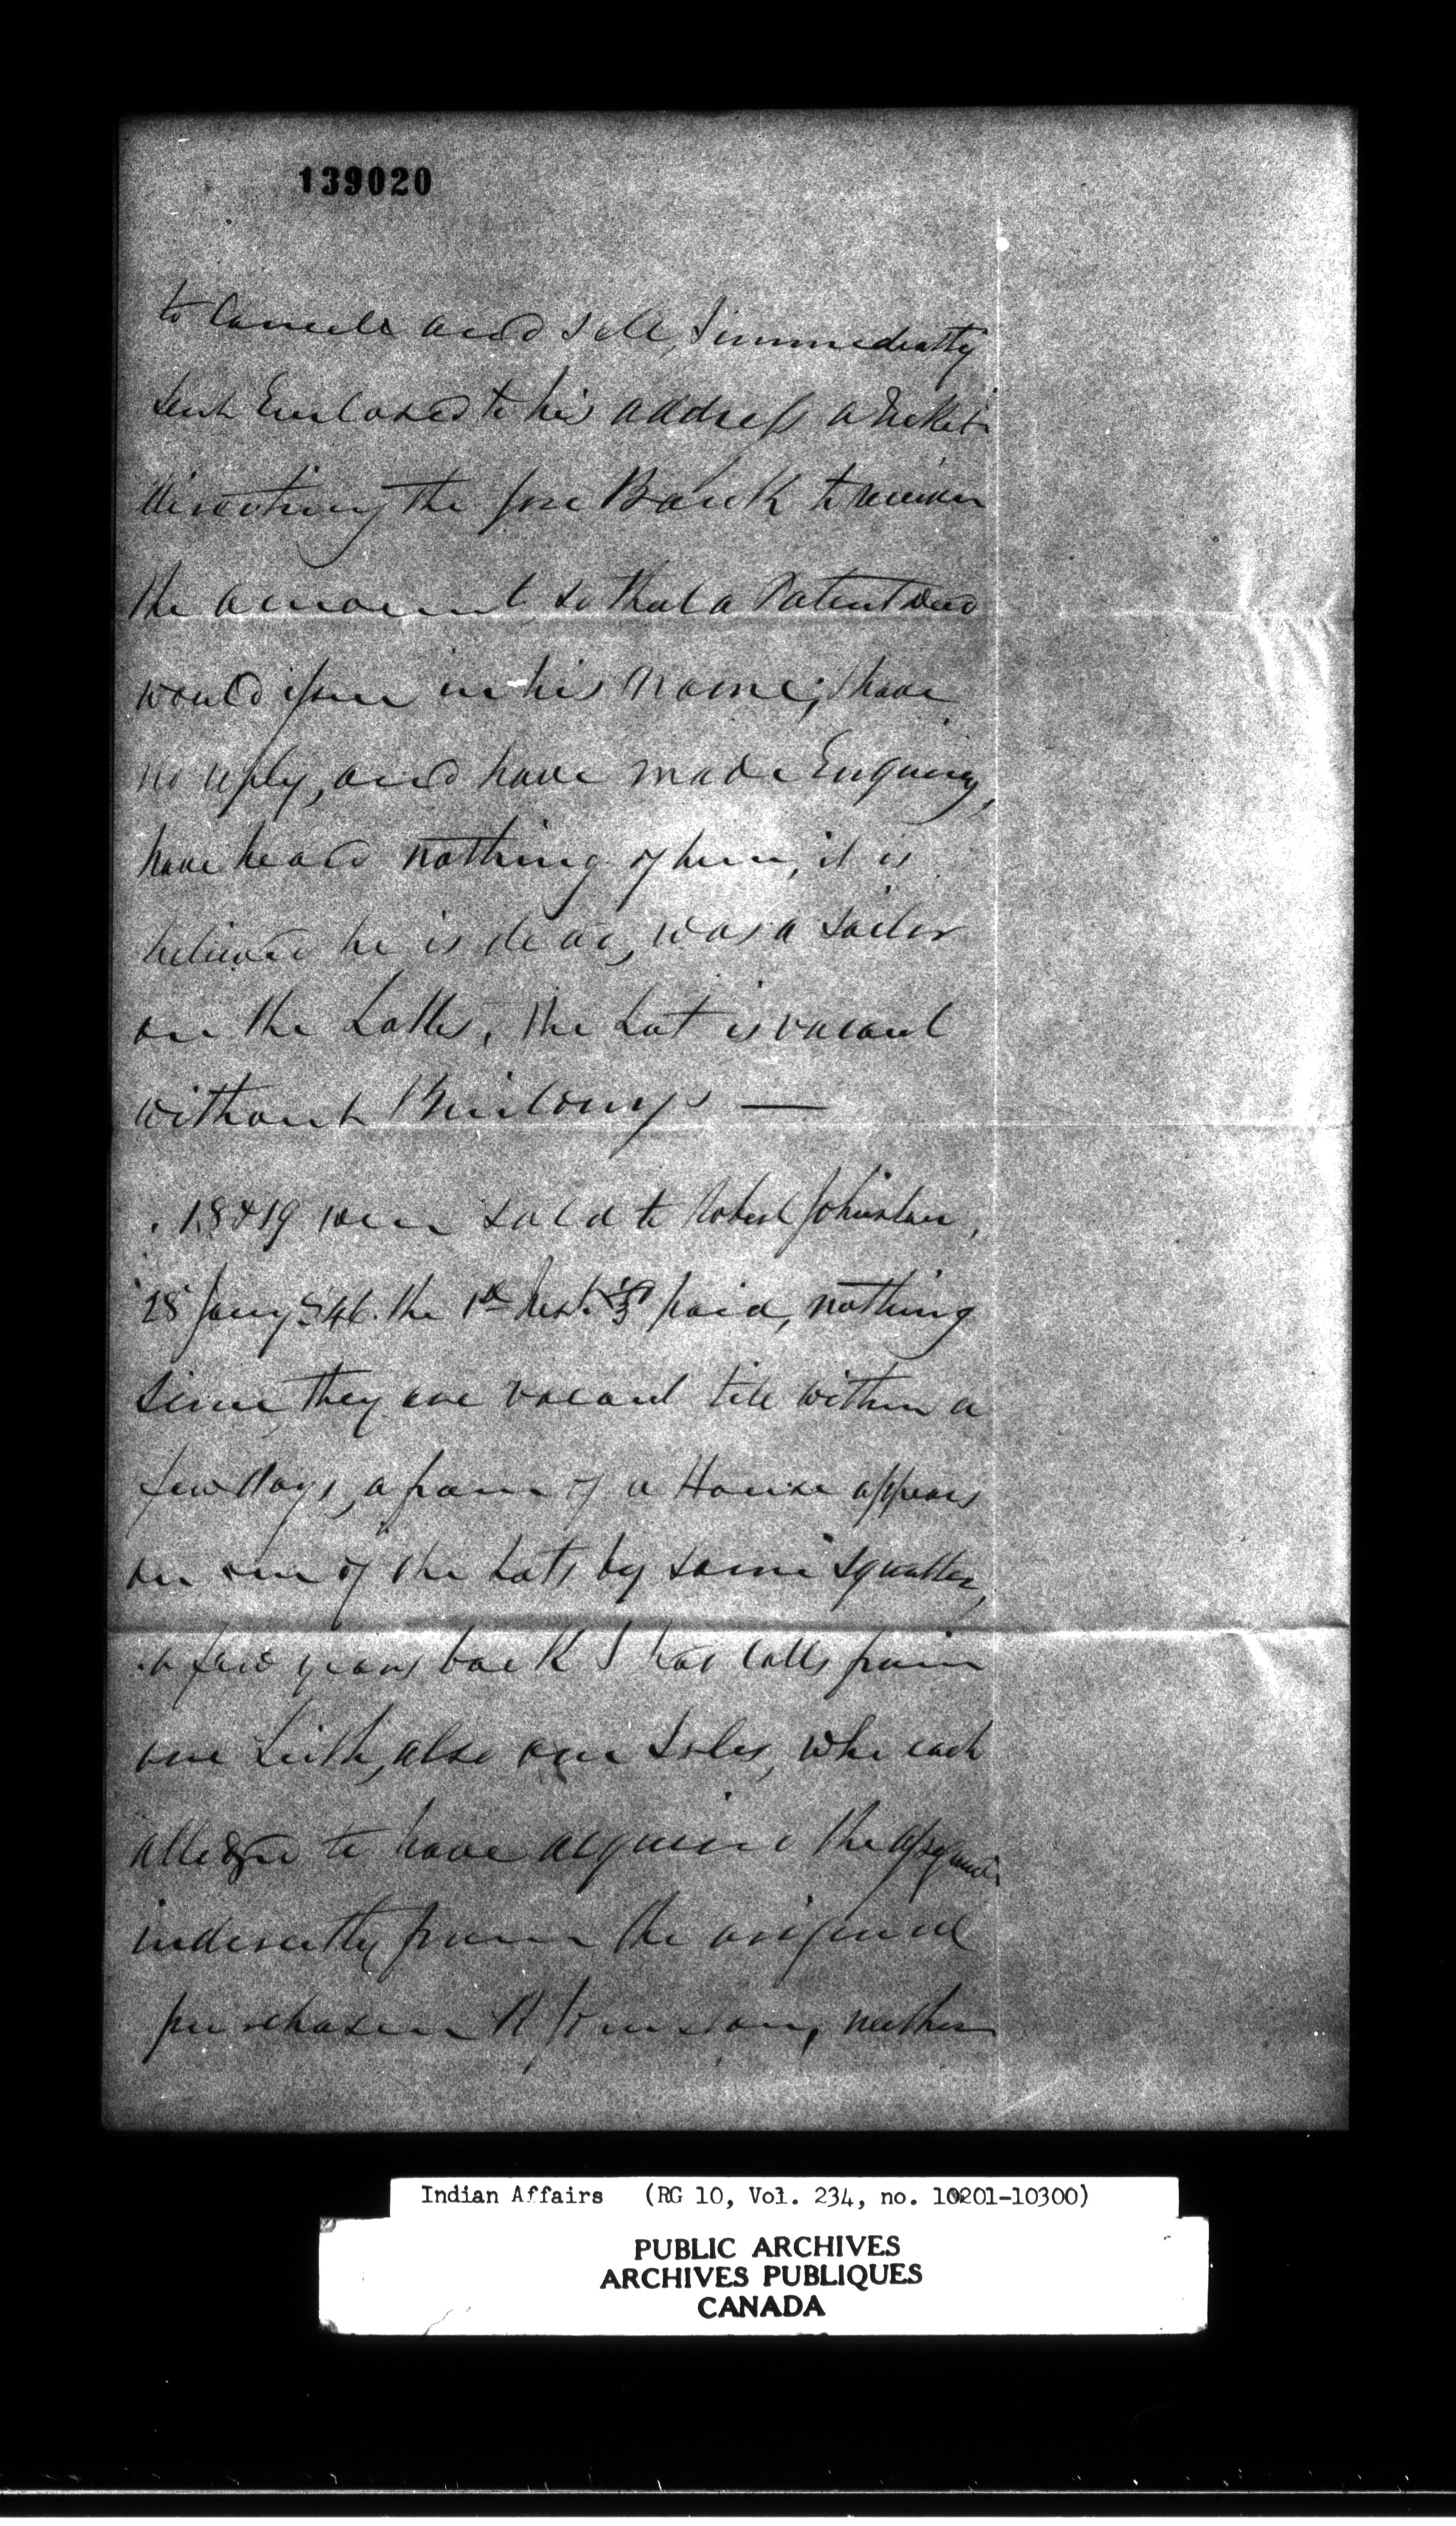 139020
to Cancel and sell, I immediatly
sent Enclosed to his address a Ticket
directing the Gore Bank to receive
the amount so that a Patent Deed
would issue in his name; I have
no reply, and have made Enquiry,
have heard nothing of him, it is
believed he is dead, was a Sailor
on the Lakes, the Lot is vacant
without Buildings —
18 & 19 were sold to Robert Johnston,
28 Jany 46. the 1st Inst. paid, nothing
since, they are vacant till within a
few days, a frame of a House appears
on one of the Lots by some squatter,
a few years back I had calls from
one Leith, also one Soles, who each
alledged to have acquired the assignmt
indirectly from the original
purchaser R Johnston, neither
Indian Affairs (RG 10, Vol. 234, no. 10201-10300)
PUBLIC ARCHIVES
ARCHIVES PUBLIQUES
CANADA